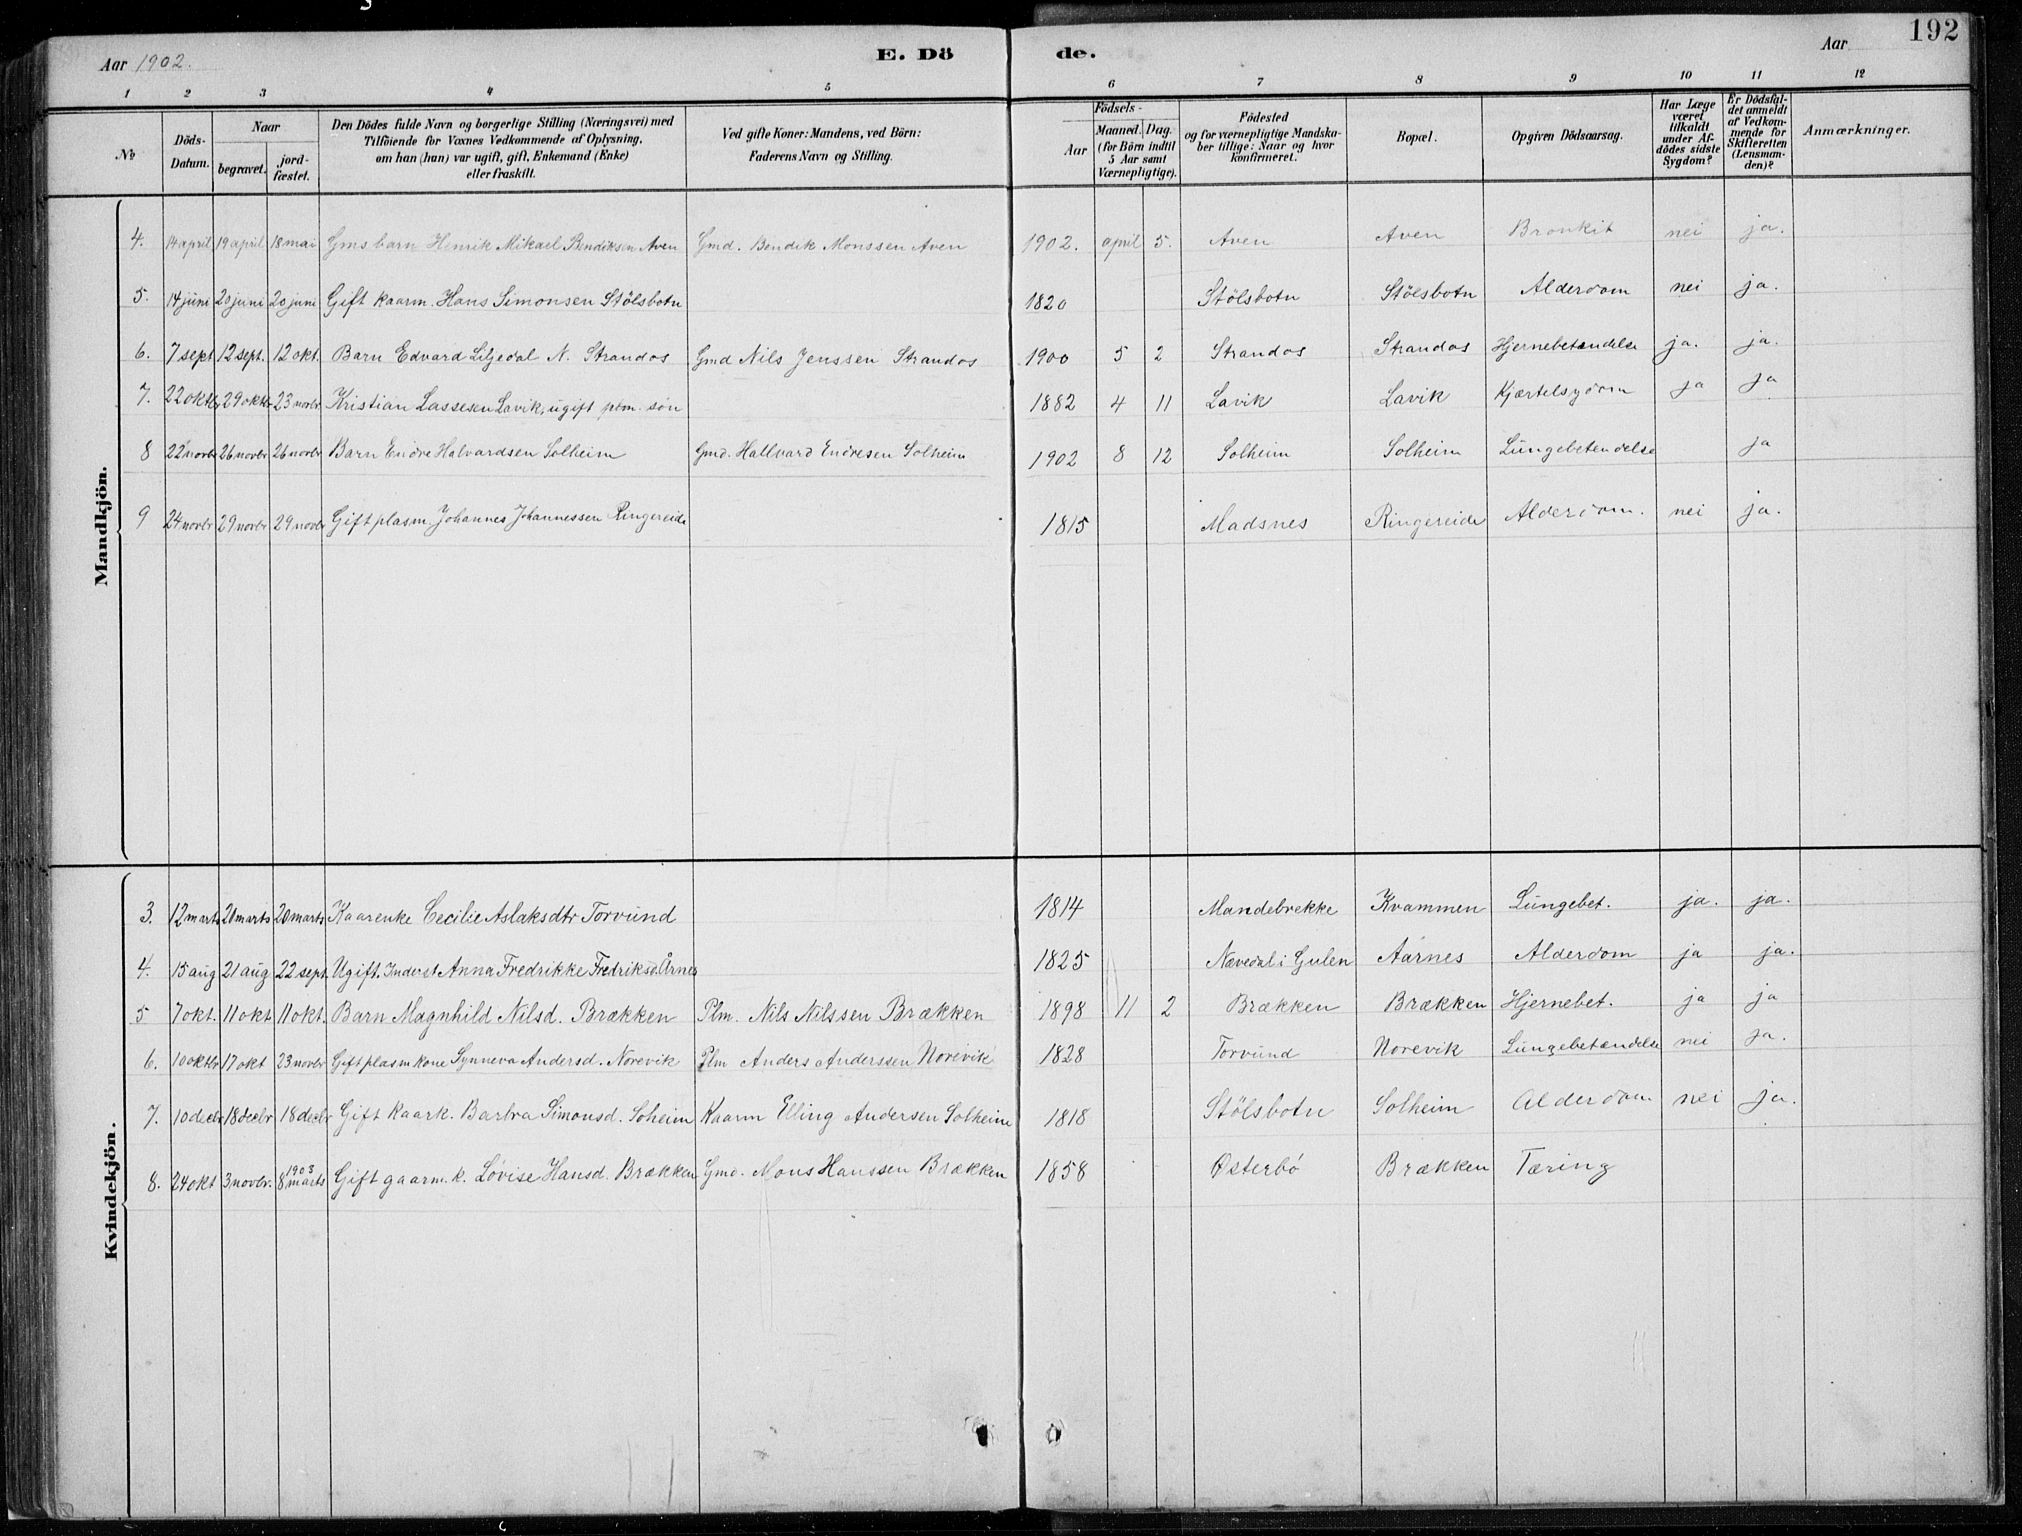 192
Aar 1902.
E. Dö
de.
Aar
1 2 3 4 5 6 7 8 9 10 11 12
No
Döds-Datum.
Naar
begravet.
jord-fæstet.
Den Dödes fulde Navn og borgerlige Stilling (Næringsvei) med
Tilföiende for Voxnes Vedkommende af Oplysning,
om han (hun) var ugift, gift, Enkemand (Enke)
eller fraskilt.
Ved gifte Koner: Mandens, ved Börn:
Faderens Navn og Stilling.
Födsels-
Aar
Maaned. Dag.
(for Börn indtil
5 Aar samt
Værnepligtige).
Födested
og for værnepligtige Mandska-
ber tillige: Naar og hvor
konfirmeret.
Bopæl.
Opgiven Dödsaarsag.
Har Læge
været
tilkaldt
under Af-
dödes sidste
Sygdom?
Er Dödsfal-
det anmeldt
af Vedkom-
mende for
Skifteretten
(Lensman-
den)?
Anmærkninger.
Mandkjön.
4. 14 april 19 april 18 mai Gmsbarn Henrik Mikael Bendiksen Aven Gmd. Bendik Monssen Aven 1902. april 5. Aven Aven Bronkit nei ja.
5. 14 juni 20 juni 20 juni Gift kaarm. Hans Simonsen Stölsbotn 1820 Stölsbotn Stölsbotn Alderdom nei ja.
6. 7 sept 12 sept. 12 okt. Barn Edvard Liljedal N. Strandos Gmd Nils Jenssen Strandos 1900 5 2 Strandos Strandos Hjernebetændelse ja. ja.
7. 22 oktbr 29 oktbr 23 novbr Kristian Lassesen Lavik, ugift plm. sön 1882 4 11 Lavik Lavik Kjærtelsygdom ja ja
8 22 novbr 26 novbr 26 novbr Barn Endre Halvardsen Solheim Gmd. Hallvard Endresen Solheim 1902 8 12 Solheim Solheim Lungebetendelse ja
9 24 novbr 29 novbr 29 novbr Gift plasm. Johannes Johannessen Ringereide 1815 Madsnes Ringereide Alderdom. nei ja.
Kvindekjön.
3. 12 marts 20 marts 20 marts Kaarenke Cecilie Aslaksdtr Torvund 1814 Mandebrekke Kvammen Lungebet. ja. ja.
4. 15 aug 21 aug 22 sept. Ugift Inderst Anna Fredrikke Fredriksd. Årnes 1825 Nævedal i Gulen Aarnes Alderdom ja ja.
5 7 okt. 11 okt 11 okt. Barn Magnhild Nilsd. Brækken Plm. Nils Nilssen Brækken 1898 11 2 Brækken Brækken Hjernebet. ja ja
6. 10 oktbr 17 okt 23 novbr Gift plasm kone Synneva Andersd. Norevik Plm Anders Anderssen Norevik 1828 Torvund Norevik Lungebetændelse nei ja.
7. 10 decbr 18 decbr 18 decbr Gift kaark. Barbra Simonsd. Soheim Kaarm Elling Andersen Solheim 1818 Stölsbotn Solheim Alderdom nei ja.
8. 24 okt 3 novbr. 1903 8 marts Gift gaarm. k. Lövise Hansd. Brækken Gmd. Mons Hanssen Brækken 1858 Østerbö Brækken Tæring